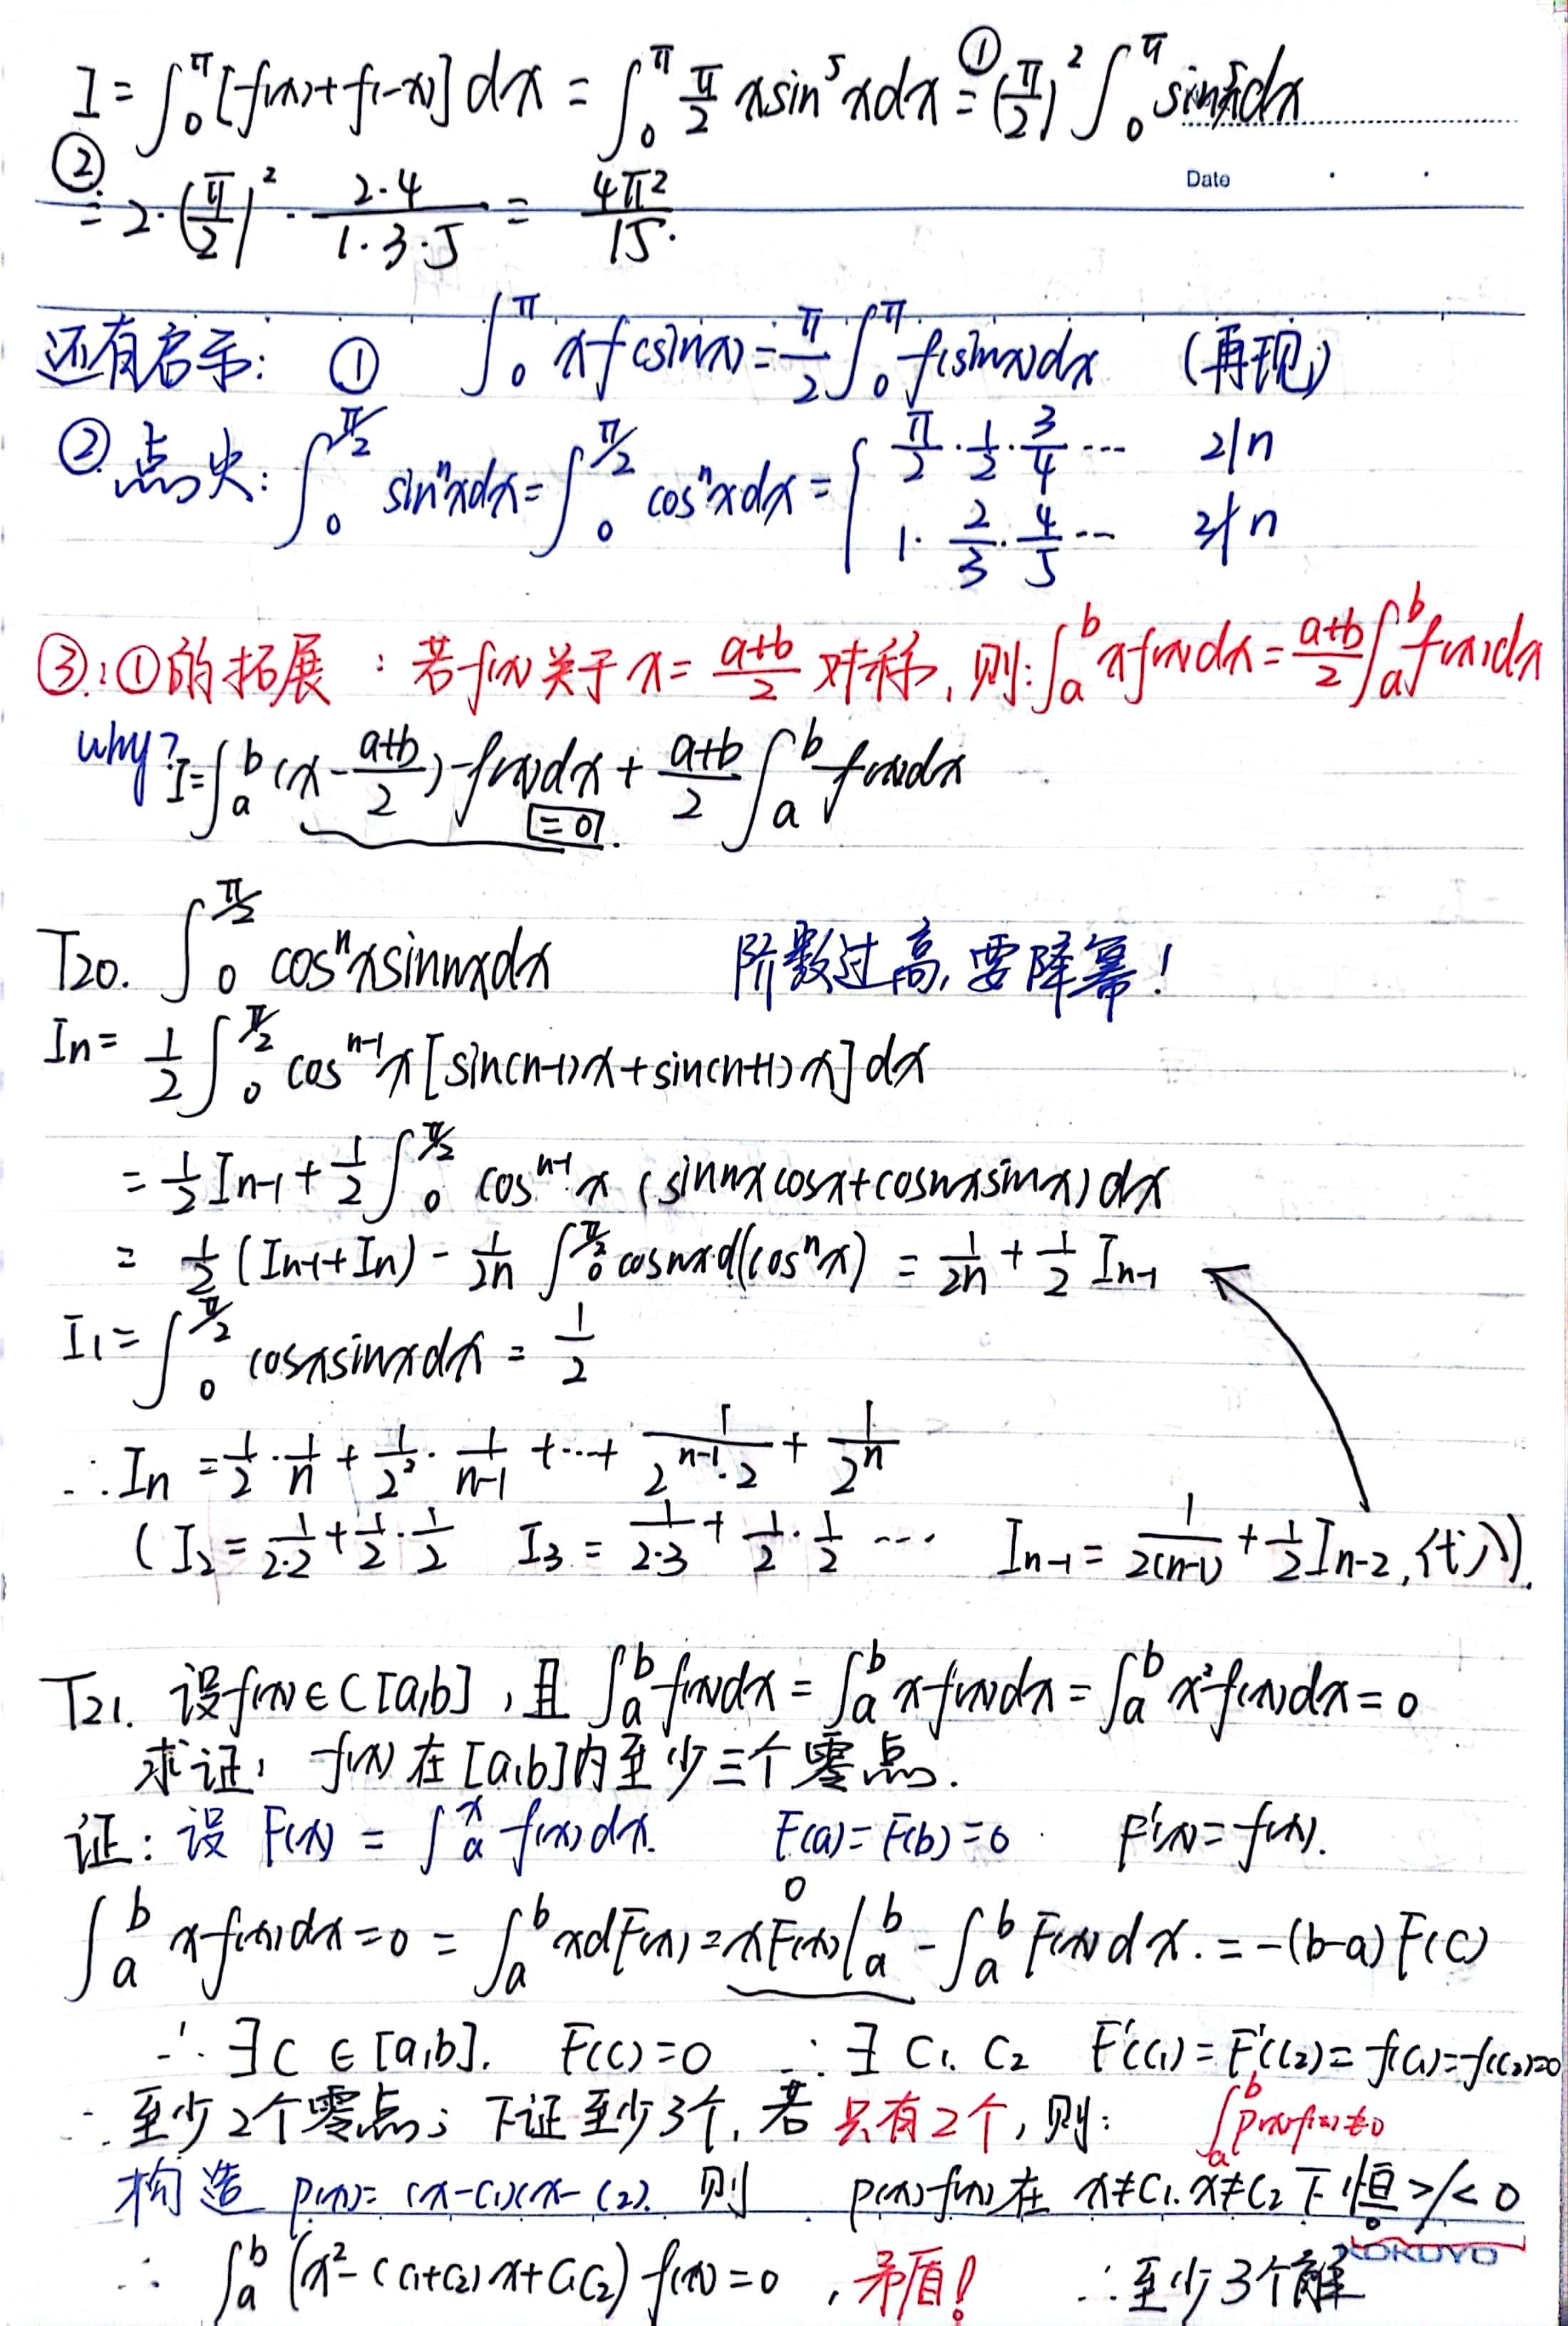 I = ∫₀^π [f(x)+f(-x)] dx = ∫₀^π π/2 x sin⁵x dx ①= (π/2)² ∫₀^π sin⁵x dx
Date
②= 2·(π/2)² · (2·4)/(1·3·5) = 4π²/15.
还有启示: ① ∫₀^π x f(sinx) = π/2 ∫₀^π f(sinx)dx (再现)
② 点火: ∫₀^{π/2} sinⁿxdx = ∫₀^{π/2} cosⁿxdx = { π/2 · 1/2 · 3/4 ··· 2|n
1 · 2/3 · 4/5 ··· 2∤n
③: ①的拓展 : 若f(x)关于 x = (a+b)/2 对称, 则: ∫ₐᵇ xf(x)dx = (a+b)/2 ∫ₐᵇ f(x)dx
why? I = ∫ₐᵇ (x - (a+b)/2) f(x)dx + (a+b)/2 ∫ₐᵇ f(x)dx
=0.
T20. ∫₀^{π/2} cosⁿx sinnx dx 阶数过高, 要降幂!
In = 1/2 ∫₀^{π/2} cosⁿ⁻¹x [sin(n-1)x + sin(n+1)x] dx
= 1/2 In-1 + 1/2 ∫₀^{π/2} cosⁿ⁻¹x (sinnxcosx + cosnxsinx) dx
= 1/2 (In-1 + In) - 1/2n ∫₀^{π/2} cosnx d(cosⁿx) = 1/2n + 1/2 In-1
I1 = ∫₀^{π/2} cosxsinxdx = 1/2
∴ In = 1/2 · 1/n + 1/2² · 1/(n-1) + ··· + 1/(2ⁿ⁻¹·2) + 1/2ⁿ
(I2 = 1/(2·2) + 1/2 · 1/2 I3 = 1/(2·3) + 1/2 · 1/2 ··· In-1 = 1/(2(n-1)) + 1/2 In-2, 代入).
T21. 设f(x)∈C[a,b], 且 ∫ₐᵇ f(x)dx = ∫ₐᵇ xf(x)dx = ∫ₐᵇ x²f(x)dx = 0
求证: f(x) 在 [a,b]内至少三个零点.
证: 设 F(x) = ∫ₐˣ f(x)dx. F(a)=F(b)=0. F'(x)=f(x).
0
∫ₐᵇ xf(x)dx = 0 = ∫ₐᵇ xdF(x) = xF(x)|ₐᵇ - ∫ₐᵇ F(x)dx. = -(b-a)F(c)
∴ ∃c∈[a,b]. F(c)=0 ∴ ∃ c1. c2 F'(c1)=F'(c2)=f(c1)=f(c2)=0
∴ 至少2个零点; 下证至少3个, 若只有2个, 则: ∫ₐᵇ p(x)f(x)≠0
构造 p(x)= (x-c1)(x-c2). 则 p(x)f(x)在 x≠c1. x≠c2下恒>/<0
∴ ∫ₐᵇ (x²-(c1+c2)x+c1c2) f(x)=0 , 矛盾! ∴至少3个解
KOKUYO